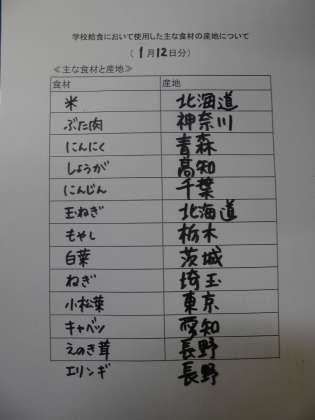 学校給食において使用した主な食材の産地について
( 1月12日分)
≪主な食材と産地≫
食材 産地
米 北海道
ぶた肉 神奈川
にんにく 青森
しょうが 高知
にんじん 千葉
玉ねぎ 北海道
もやし 栃木
白菜 茨城
ねぎ 埼玉
小松菜 東京
キャベツ 愛知
えのき茸 長野
エリンギ 長野